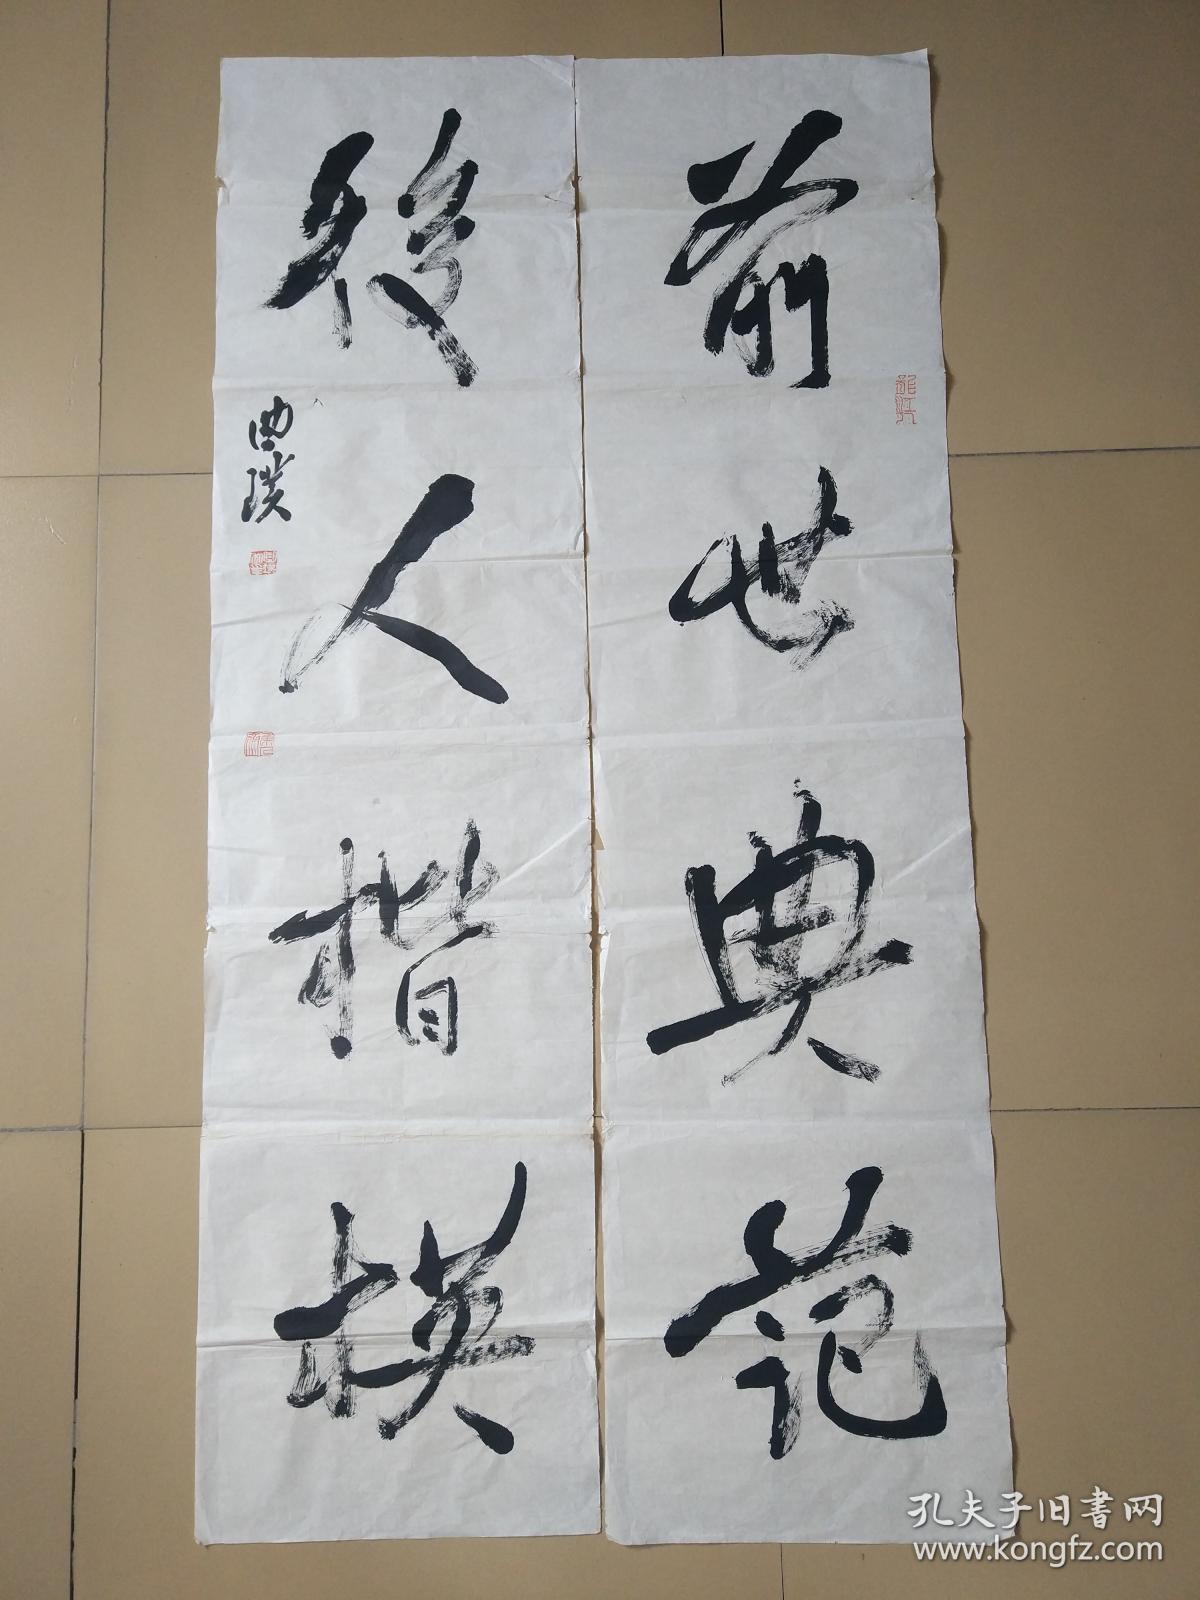 前世典范
後人楷模
曲璞
孔夫子旧书网
www.kongfz.com